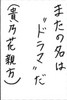 またの名は
"ドラマ"だ
(貴乃花親方)